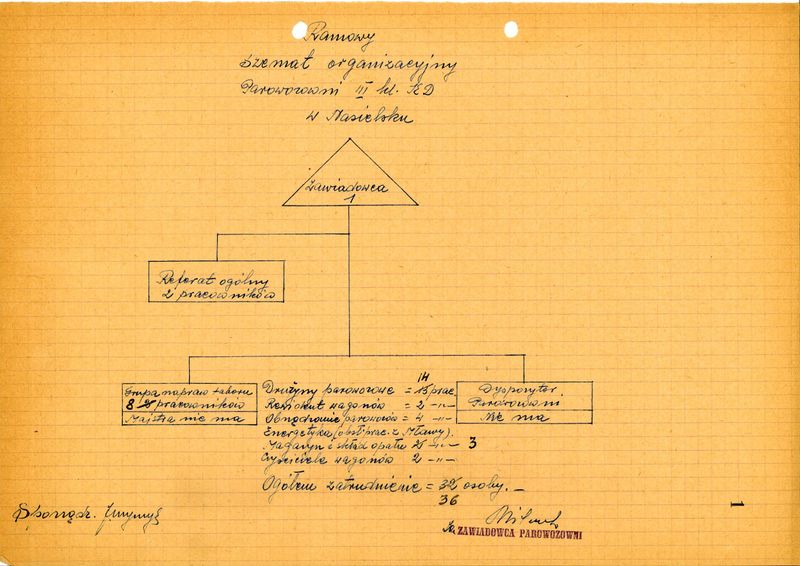 Ramowy
szemat organizacyjny
Parowozowni III kl. KD
w Nasielsku
Zawiadowca
1
Referat ogólny
2 pracowników
Grupa napraw taboru
8 pracowników
Majstra nie ma
14
Drużyny parowozowe = 15 prac
Rewident wagonów = 2 -"-
Obrządzanie parowozów = 4 -"-
Energetyka (obsł. prac. z Mławy).
Magazyn i skład opału 2 -"- 3
Czyściciele wagonów 2 -"-
Ogółem zatrudnienie = 32 osoby. -
36
Dyspozytor
Parowozowni
Nie ma
1
Sporządz.
ZAWIADOWCA PAROWOZOWNI